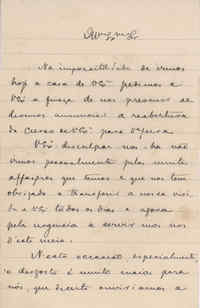 Na impossibilidade de irmos
hoje a casa de V. Exª pedimos a
V. Exª a fineza de nos
dizermos annunciar a reabertura
do Curso de V. Exª para
V. Exª desculpar nos-ha não
irmos pessoalmente pelos muitos
affazeres que temos e que nos tem
obrigado a transferir a nossa visi
ta a V. Exª todos os dias e agora
pela urgencia de servirmos nos
d'este meio.
N'esta occasião, especialmente,
o desgosto é muito maior para
nós, que decerto ouviriamos a